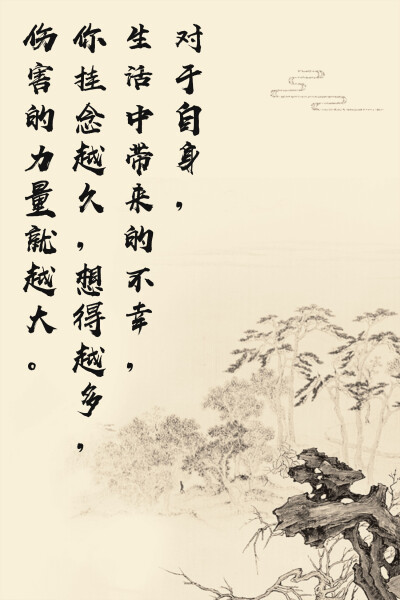 对于自身，
生活中带来的不幸，
你挂念越久，想得越多，
伤害的力量就越大。